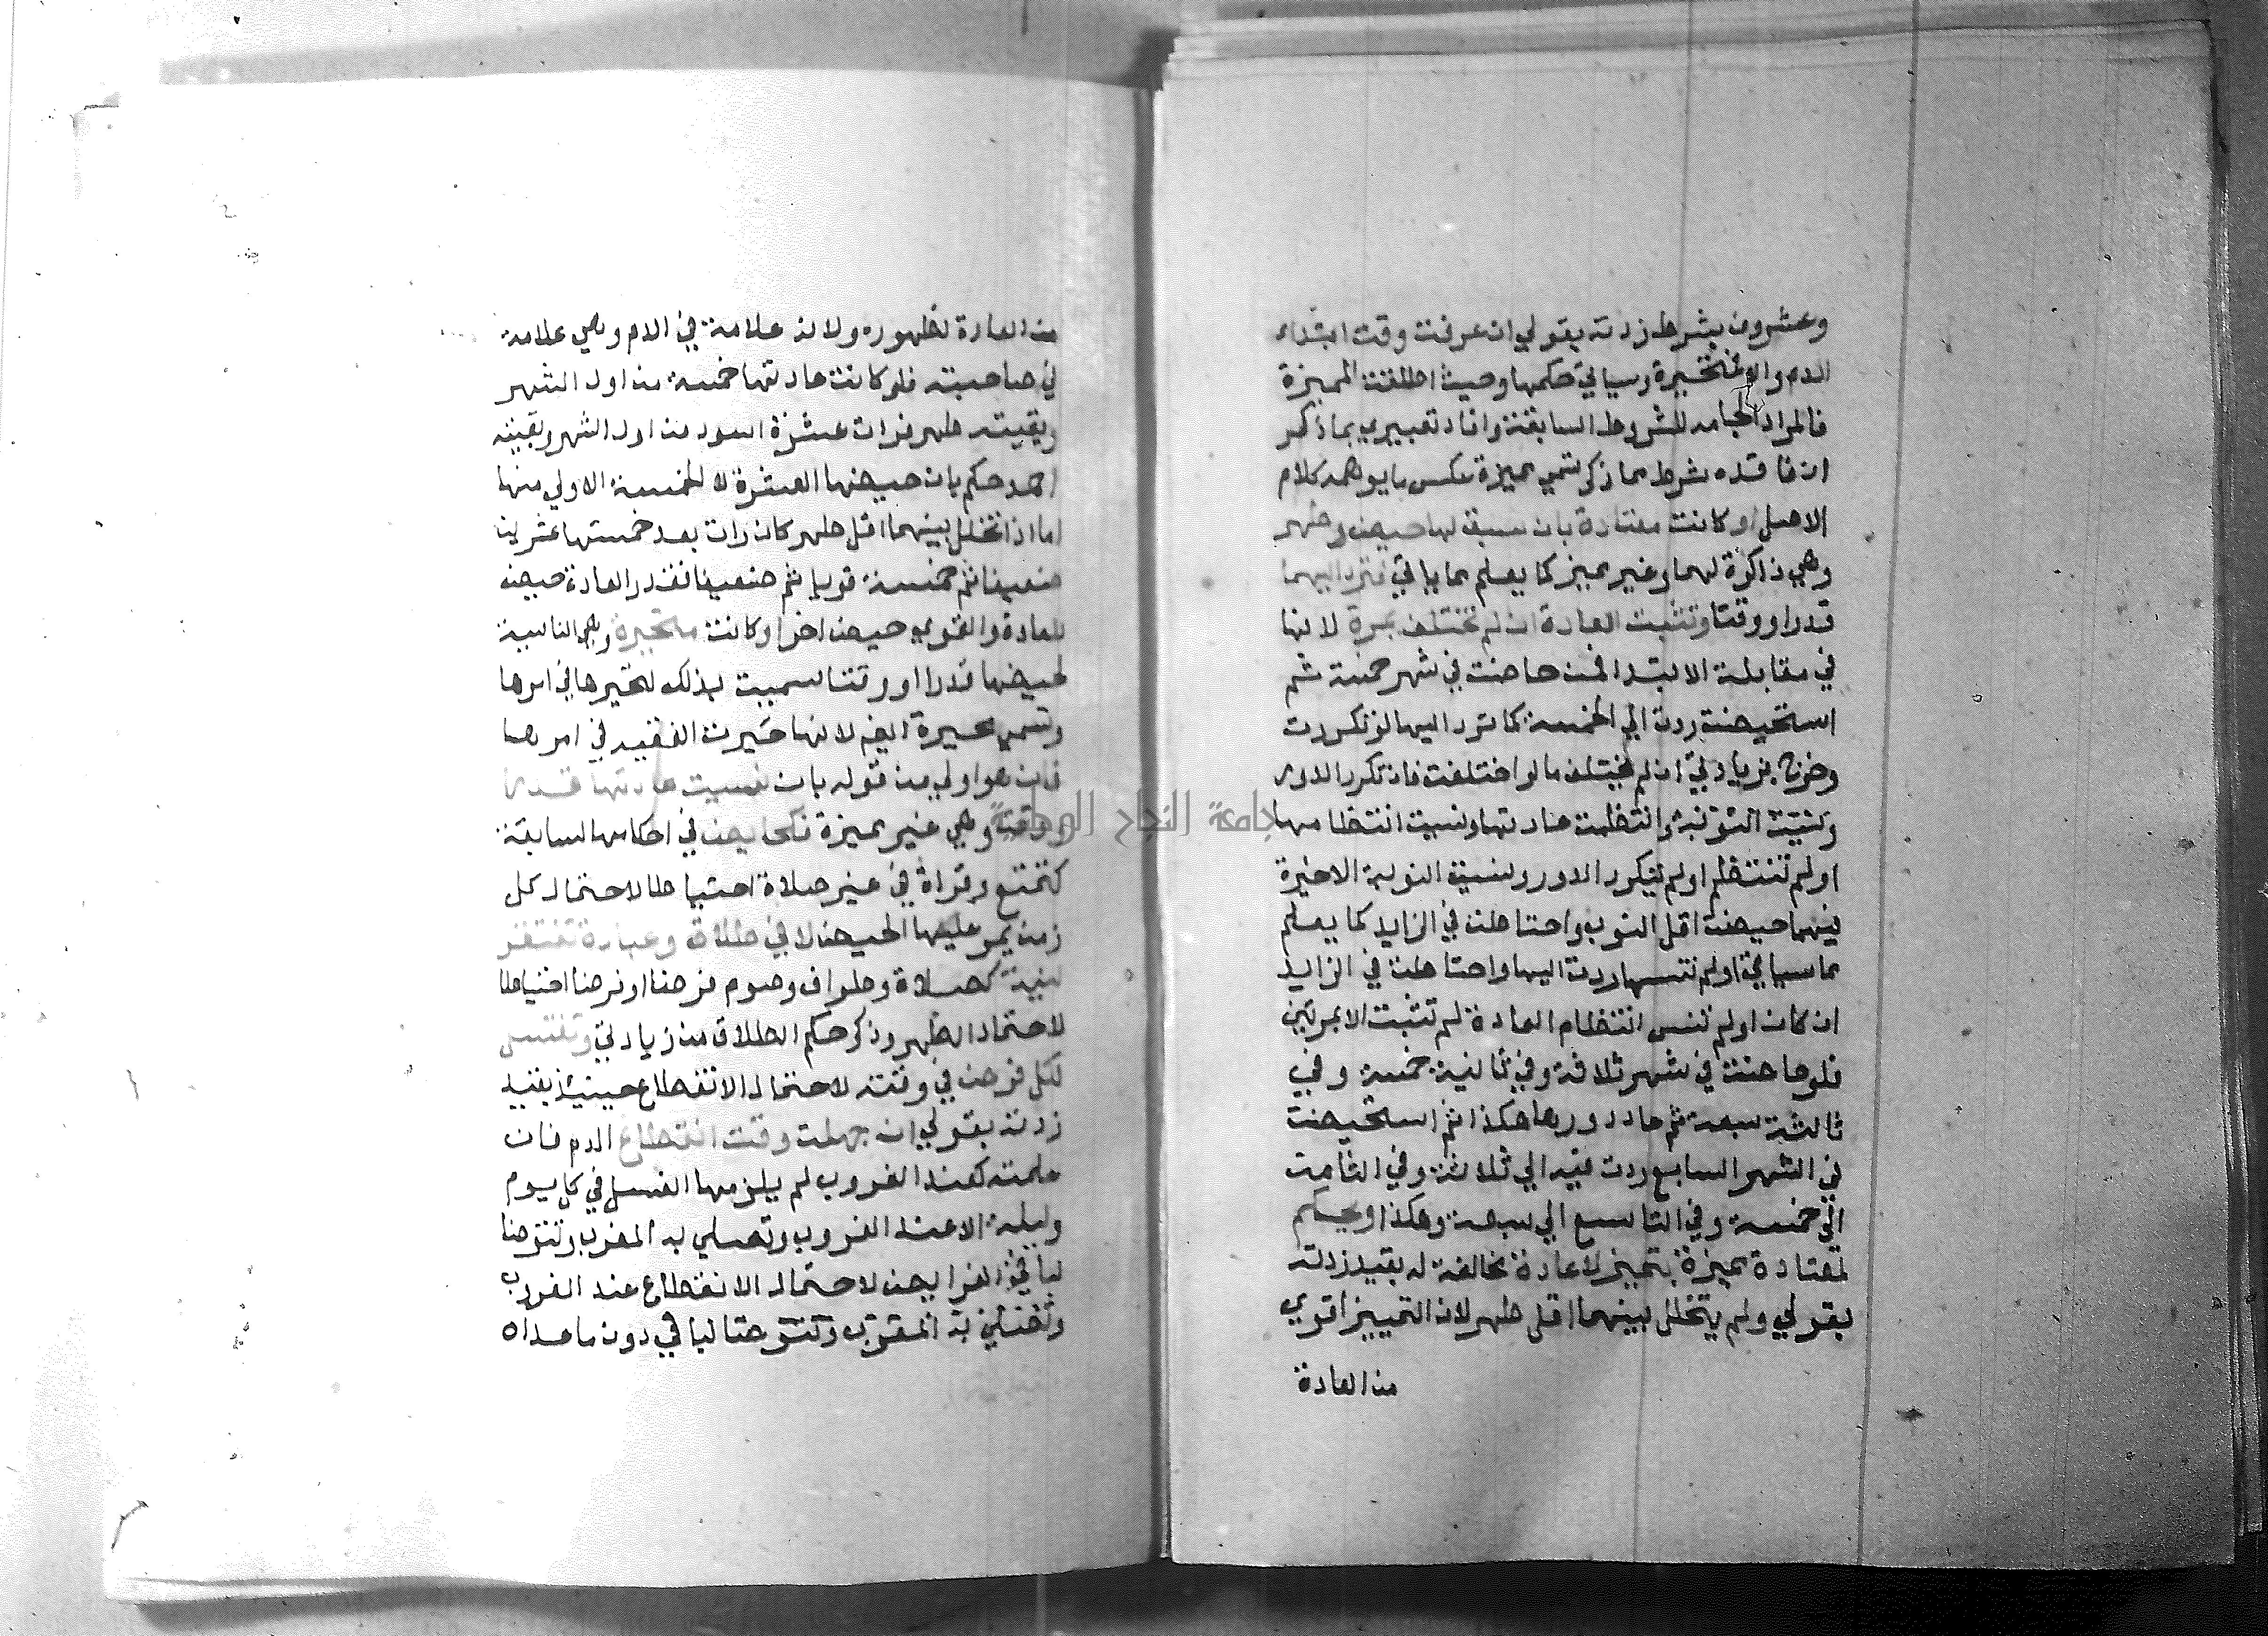 وعشرون بشرط زدته بقولي ان عرفت وقت ابتداء
الدم والا فمتحيرة وسياتي حكمها وحيث اطلقت المميزة
فالمراد الجامعه للشروط السابقة وافاد تعبيري بما ذكر
ان فاقده شرط مما ذكر تسمي مميزة عكس ما يوهمه كلام
الاصل او كانت معتادة بان سبق لها حيض وطهر
وهي ذاكرة لهما وغير مميز كما يعلم مما ياتي فترد اليهما
قدرا ووقتا وتثبت العادة ان لم تختلف بمرة لانها
في مقابلة الابتدا فمن حاضت في شهر خمسة ثم
استحيضت ردت الي الخمسة كما ترد اليها لو تكررت
وخرج بزيادتي ان لم تختلف ما لو اختلفت فان تكرر الدور
وانتظمت عادتها ونسيت انتظامها
او لم تنتظم او لم يتكرر الدور ونسيت النوبة الاخيرة
فيهما حيضت اقل النوب واحتاطت في الزايد كما يعلم
مما سياتي او لم تنسها ردت اليها واحتاطت في الزايد
ان كان او لم تنس انتظام العادة لم تثبت الا بمرتين
فلو حاضت في شهر ثلاثة وفي ثانية خمسة وفي
ثالثة سبعة ثم عاد دورها هكذا ثم استحيضت
في الشهر السابع ردت فيه الي ثلاثة وفي الثامن
الي خمسة وفي التاسع الي سبعة وهكذا ويحكم
لمعتادة مميزة بتمييز لا عادة مخالفة له بقيد زدته
بقولي ولم يتخلل بينهما اقل طهر لان التمييز اقوي
من العادة
من العادة لظهوره ولانه علامة في الدم وهي علامة
في صاحبته فلو كانت عادتها خمسة من اول الشهر
وبقيته طهر فرات عشرة اسود من اول الشهر وبقيته
احمر حكم بان حيضها العشرة لا الخمسة الاولي منها
اما اذا تخلل بينهما اقل طهر كان رات بعد خمستها عشرين
ضعيفا ثم خمسة قويا ثم ضعيفا فقدر العادة حيض
للعادة والقوي حيض اخر او كانت متحيرة وهي الناسية
لحيضها قدرا او وقتا سميت بذلك لتحيرها في امرها
وتسمي محيرة ايضا لانها حيرت الفقيه في امرها
فان هو اولي من قوله بان نسيت عادتها قدرا
ووقتا وهي غير مميزة فكحايض في احكامها السابقة
كتمتع وقراة في غير صلاة احتياطا لاحتمال كل
زمن يمر عليها الحيض لا في طلاق وعبادة تفتقر
لنية كصلاة وطواف وصوم فرضا او نفلا احتياطا
لاحتمال الطهر وذكر حكم الطلاق من زيادتي وتغتسل
لكل فرض في وقته لاحتمال الانقطاع حينيذ بقيد
زدته بقولي ان جهلت وقت انقطاع الدم فان
علمته كعند الغروب لم يلزمها الغسل في كل يوم
وليلة الا عند الغروب وتصلي به المغرب وتتوضا
لباقي الفرايض لاحتمال الانقطاع عند الغروب
وتصلي به المغرب وتتوضا لباقي دون ما عداه
جامعة النجاح الوطنية